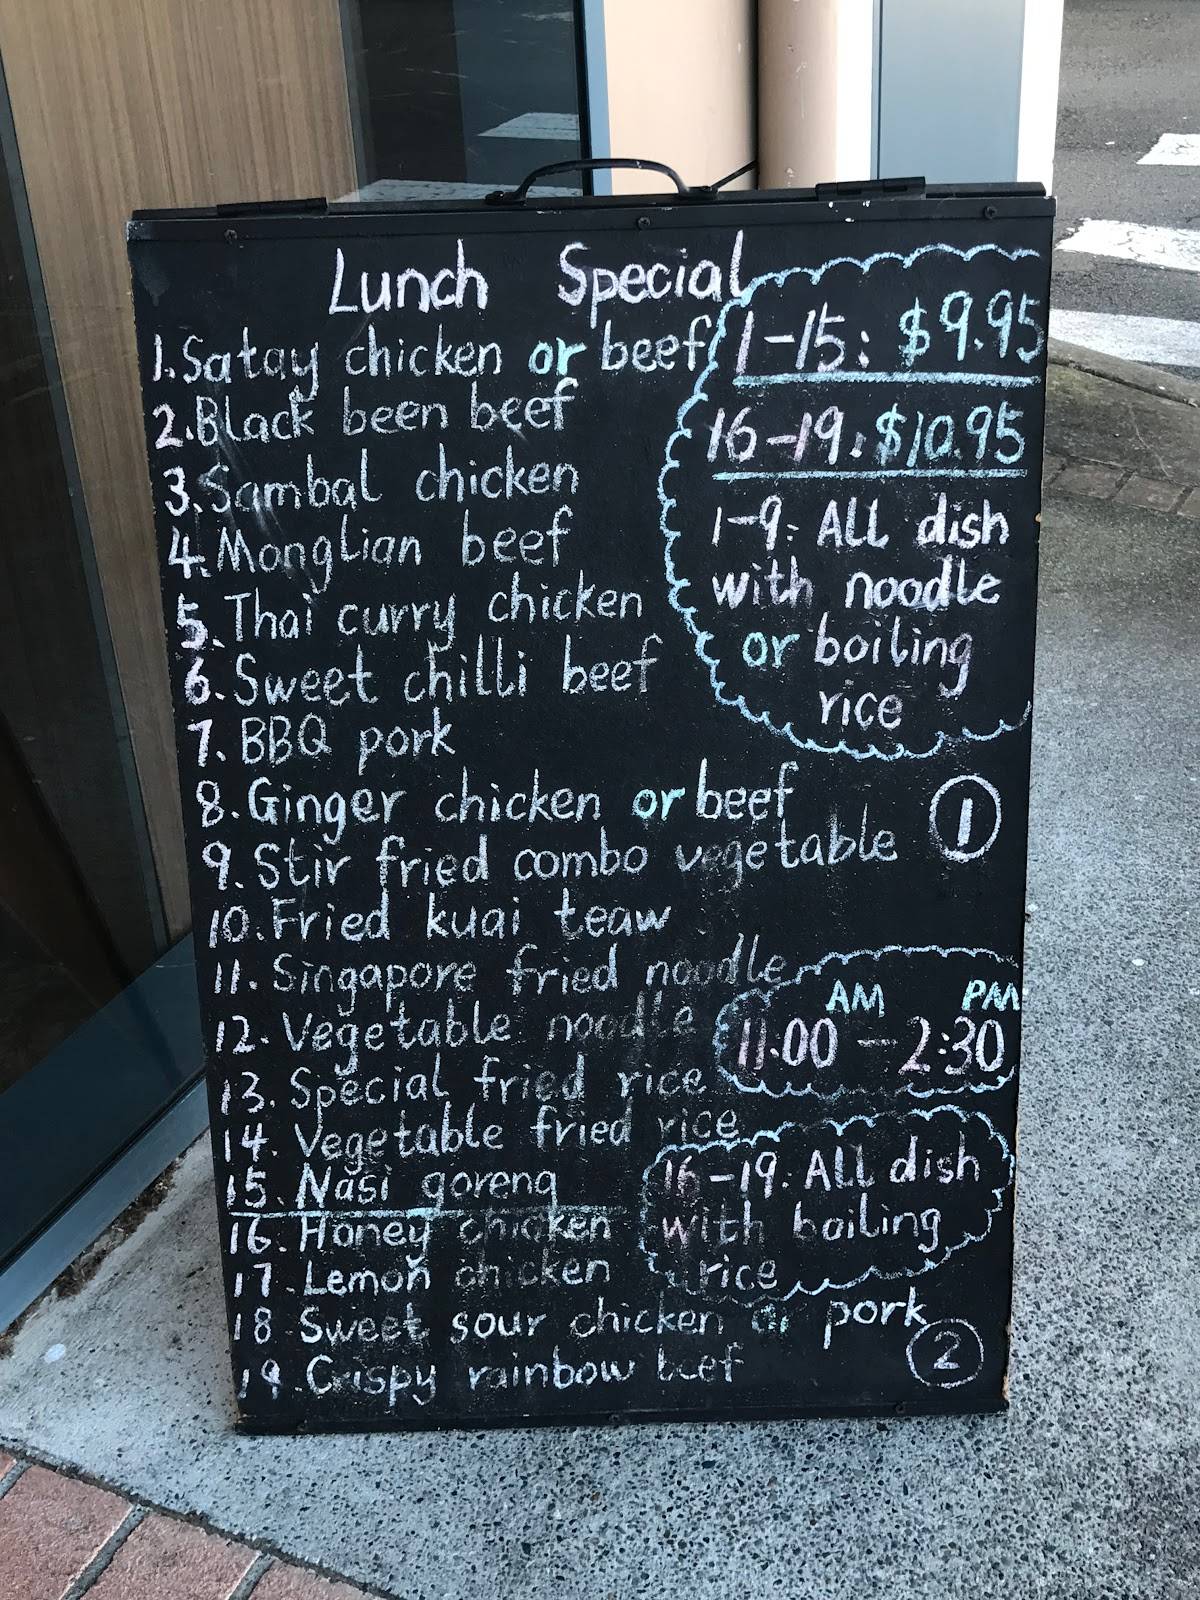 Lunch Special
1. Satay chicken or beef
2. Black been beef
3. Sambal chicken
4. Monglian beef
5. Thai curry chicken
6. Sweet chilli beef
7. BBQ pork
8. Ginger chicken or beef
9. Stir fried combo vegetable
10. Fried kuai teaw
11. Singapore fried noodle
12. Vegetable noodle
13. Special fried rice
14. Vegetable fried rice
15. Nasi goreng
16. Honey chicken
17. Lemon chicken
18 Sweet sour chicken or pork
19. Crispy rainbow beef
1-15: $9.95
16-19: $10.95
1-9: All dish
with noodle
or boiling
rice
1
AM PM
11.00 - 2:30
16-19: All dish
with boiling
rice
2